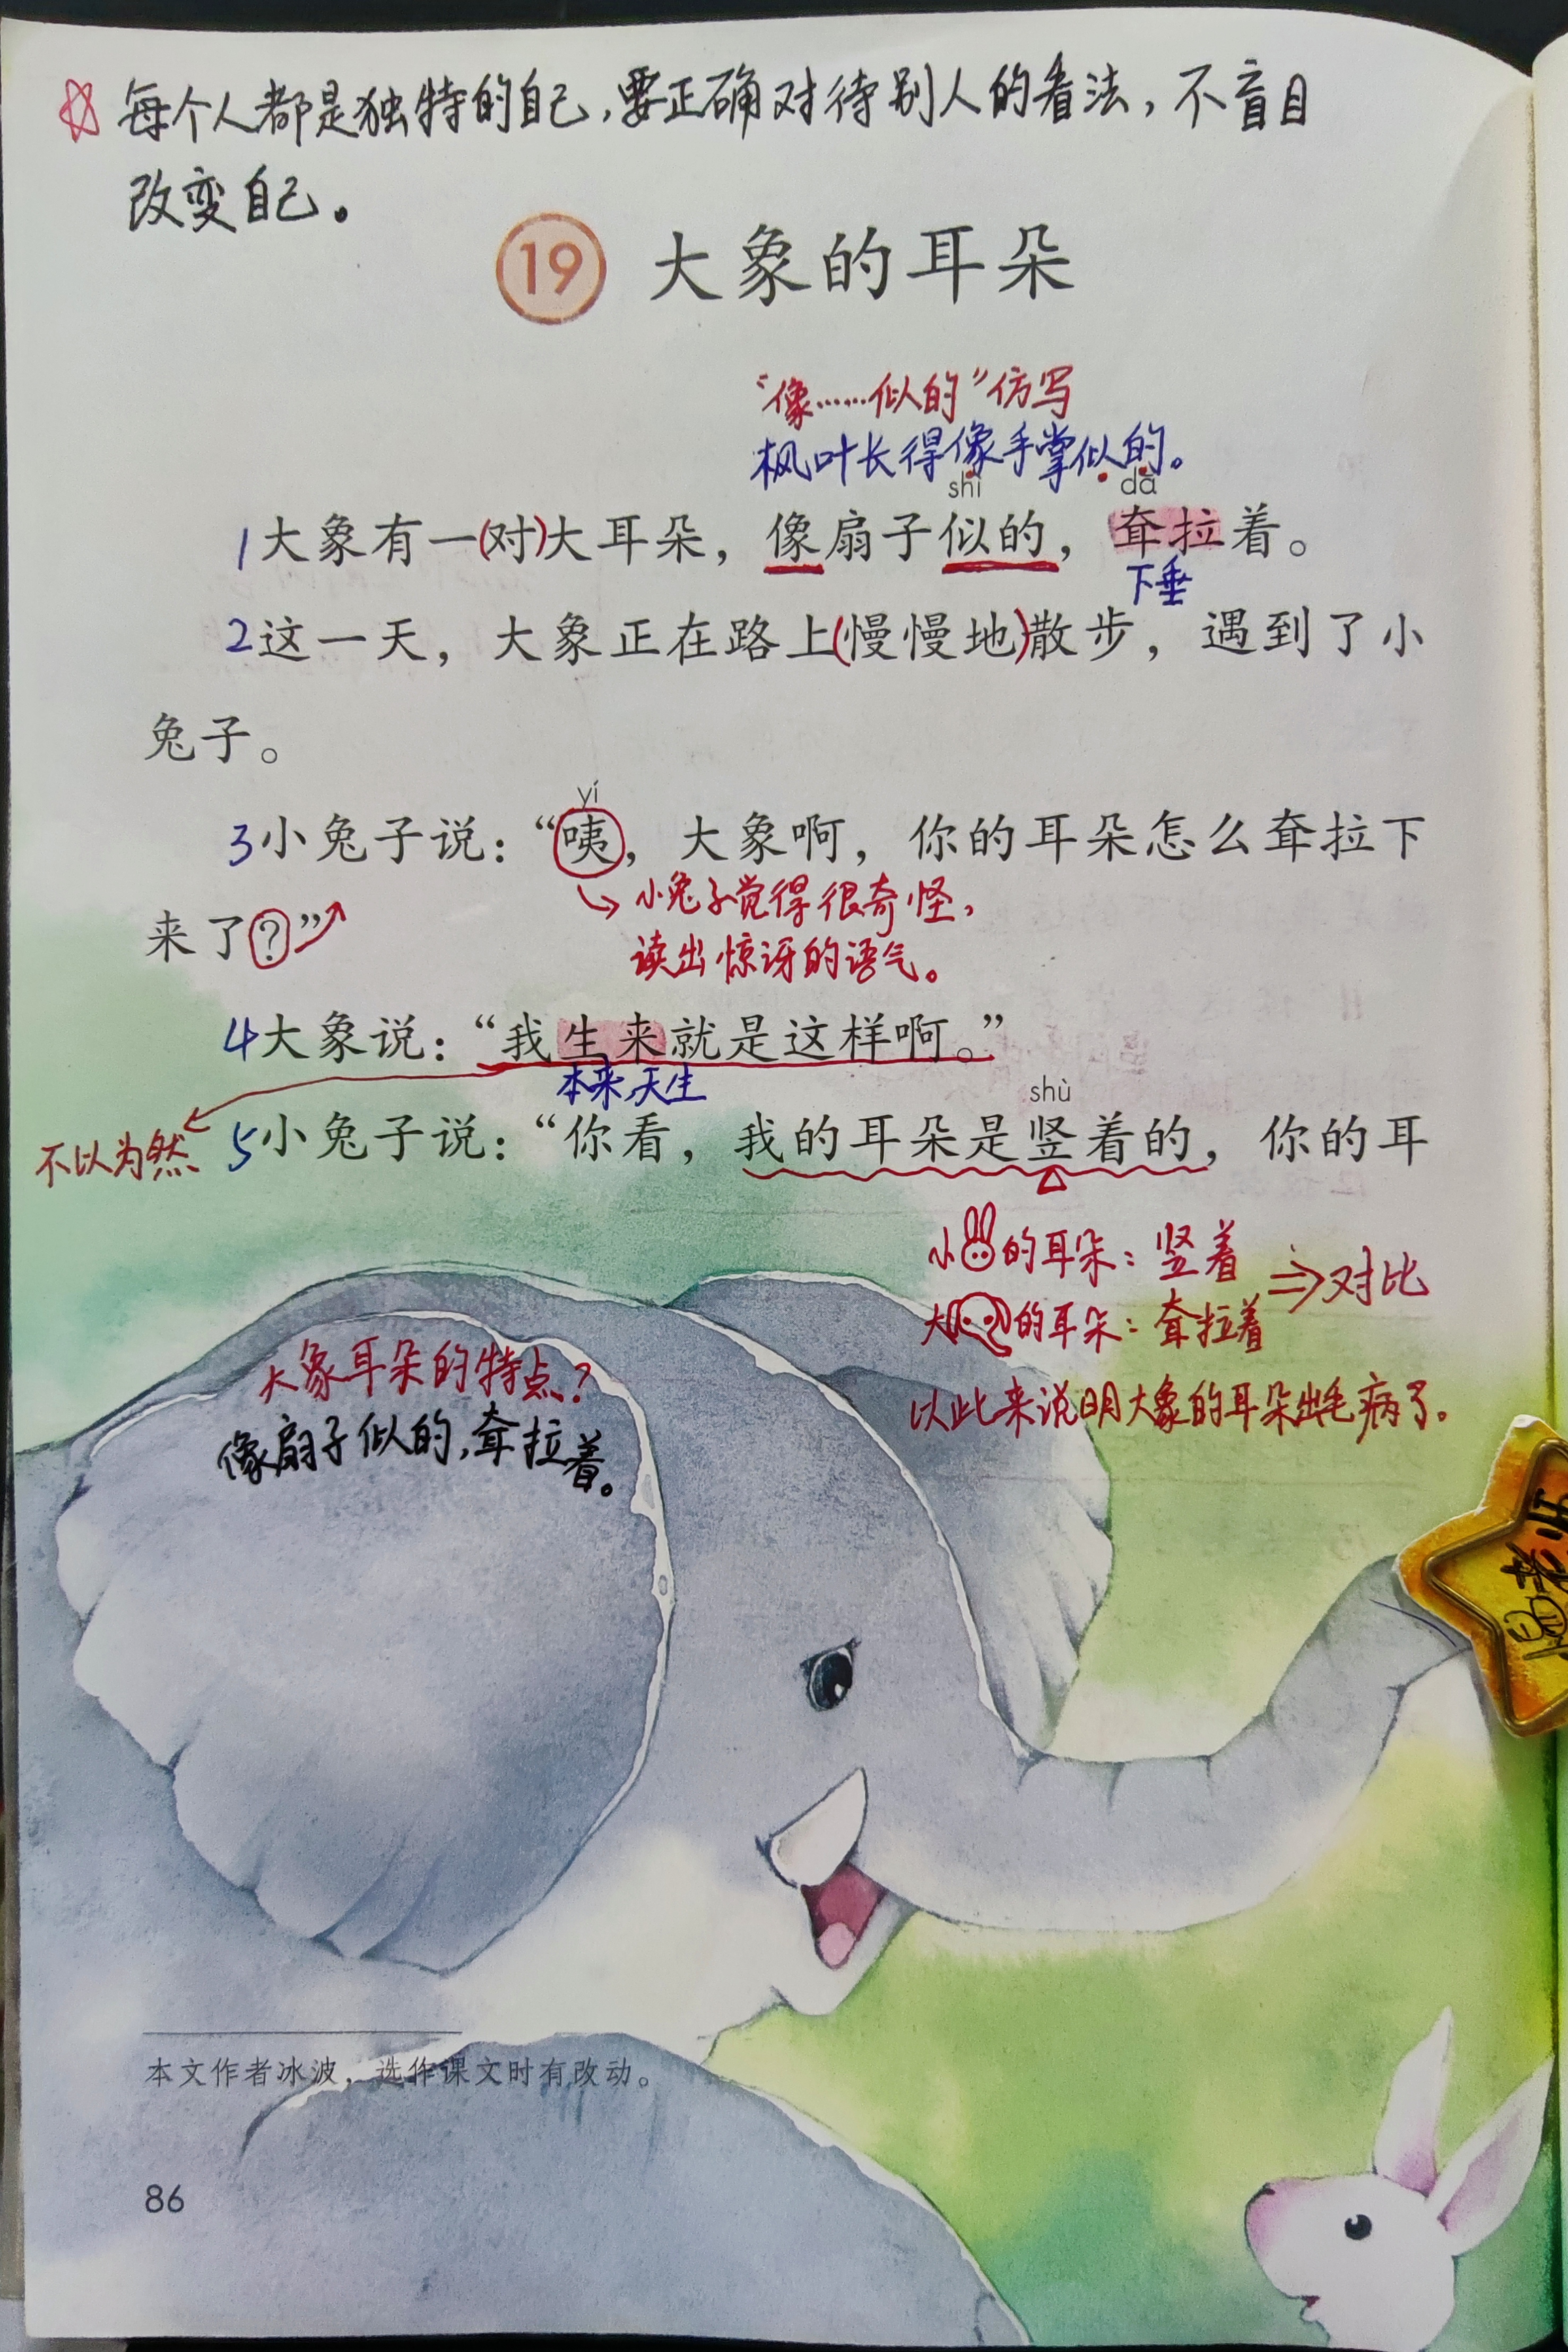 每个人都是独特的自己，要正确对待别人的看法，不盲目
改变自己。
19 大象的耳朵
“像……似的”仿写
枫叶长得像手掌似的。
shì dā
1大象有一(对)大耳朵，像扇子似的，耷拉着。
下垂
2这一天，大象正在路上(慢慢地)散步，遇到了小
兔子。
yí
3小兔子说：“咦，大象啊，你的耳朵怎么耷拉下
来了？”
小兔子觉得很奇怪，
读出惊讶的语气。
4大象说：“我生来就是这样啊。”
本来，天生
shù
不以为然
5小兔子说：“你看，我的耳朵是竖着的，你的耳
小的耳朵：竖着
大的耳朵：耷拉着
⇒对比
以此来说明大象的耳朵出毛病了。
大象耳朵的特点？
像扇子似的，耷拉着。
本文作者冰波，选作课文时有改动。
86